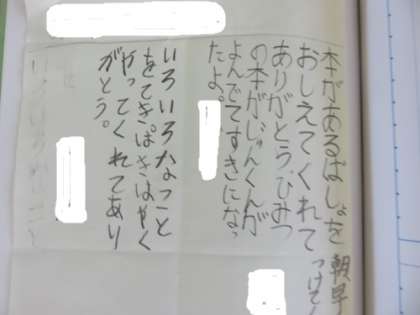 朝早
つけてく
本があるばしょを
おしえてくれて
ありがとう。ひみつ
の本がじゅんくんが
よんでてすきになっ
たよ。
いろいろなっこと
をてきぱきはやく
やってくれてあり
がとう。